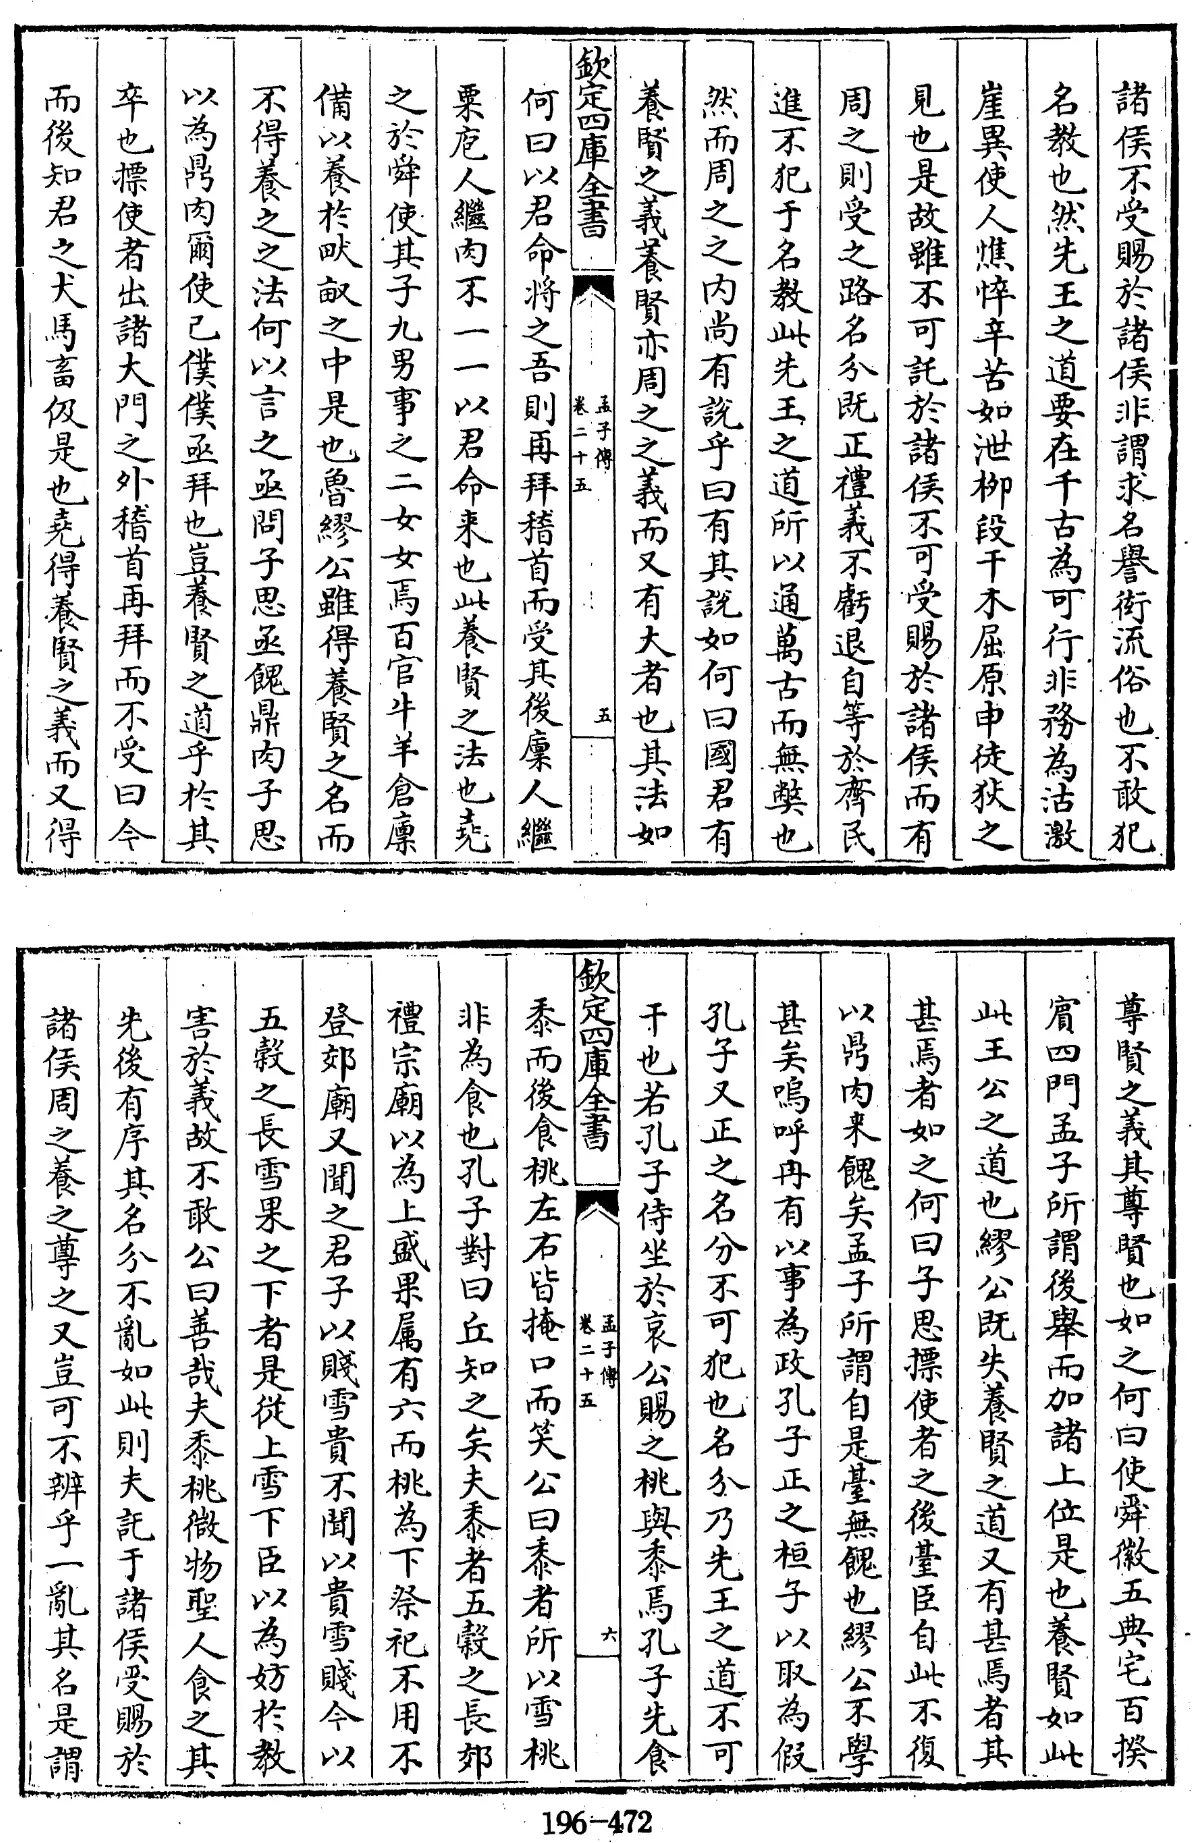 諸侯不受賜於諸侯非謂求名譽街流俗也不敢犯
名教也然先王之道要在千古為可行非務為沽激
崖異使人憔悴辛苦如泄栁段干木屈原申徒狄之
見也是故雖不可託於諸侯不可受賜於諸侯而有
周之則受之路名分既正禮義不虧退自等於齊民
進不犯于名教此先王之道所以通萬古而無獘也
然而周之之内尚有說乎曰有其說如何曰國君有
養賢之義養賢亦周之之義而又有大者也其法如
欽定四庫全書
孟子傳
卷二十五
五
何曰以君命将之吾則再拜稽首而受其後廩人繼
粟庖人繼肉不一一以君命来也此養賢之法也堯
之於舜使其子九男事之二女女焉百官牛羊倉廩
備以養於畎畝之中是也魯繆公雖得養賢之名而
不得養之之法何以言之亟問子思亟餽鼎肉子思
以為鼎肉爾使己僕僕亟拜也豈養賢之道乎於其
卒也摽使者出諸大門之外稽首再拜而不受曰今
而後知君之犬馬畜伋是也堯得養賢之義而又得
尊賢之義其尊賢也如之何曰使舜徽五典宅百揆
賔四門孟子所謂後舉而加諸上位是也養賢如此
此王公之道也繆公既失養賢之道又有甚焉者其
甚焉者如之何曰子思摽使者之後臺臣自此不復
以鼎肉来餽矣孟子所謂自是臺無餽也繆公不學
甚矣嗚呼冉有以事為政孔子正之桓子以取為假
孔子又正之名分不可犯也名分乃先王之道不可
干也若孔子侍坐於哀公賜之桃與黍焉孔子先食
欽定四庫全書
孟子傳
卷二十五
六
黍而後食桃左右皆掩口而笑公曰黍者所以雪桃
非為食也孔子對曰丘知之矣夫黍者五穀之長郊
禮宗廟以為上盛果属有六而桃為下祭祀不用不
登郊廟又聞之君子以賤雪貴不聞以貴雪賤今以
五穀之長雪果之下者是從上雪下臣以為妨於教
害於義故不敢公曰善哉夫黍桃微物聖人食之其
先後有序其名分不亂如此則夫託于諸侯受賜於
諸侯周之養之尊之又豈可不辨乎一亂其名是謂
196-472